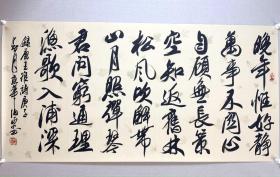 晚年惟好靜
萬事不関心
自顧無長策
空知返舊林
松風吹解帶
山月照彈琴
君問窮通理
漁歌入浦深
錄唐王維詩庚子